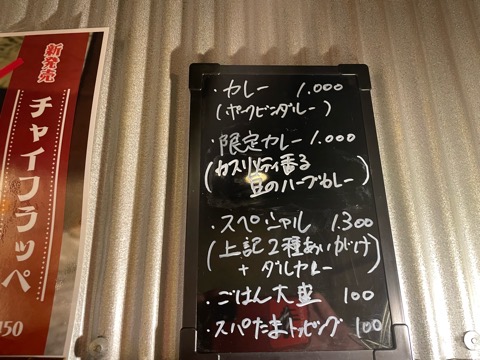 新発売
チャイフラッペ
450
・カレー 1.000
(ポークビンダルー)
・限定カレー 1.000
(カスリメティ香る
豆のハーブカレー)
・スペシャル 1.300
(上記2種あいがけ
+ ダルカレー)
・ごはん大盛 100
・スパたまトッピング 100